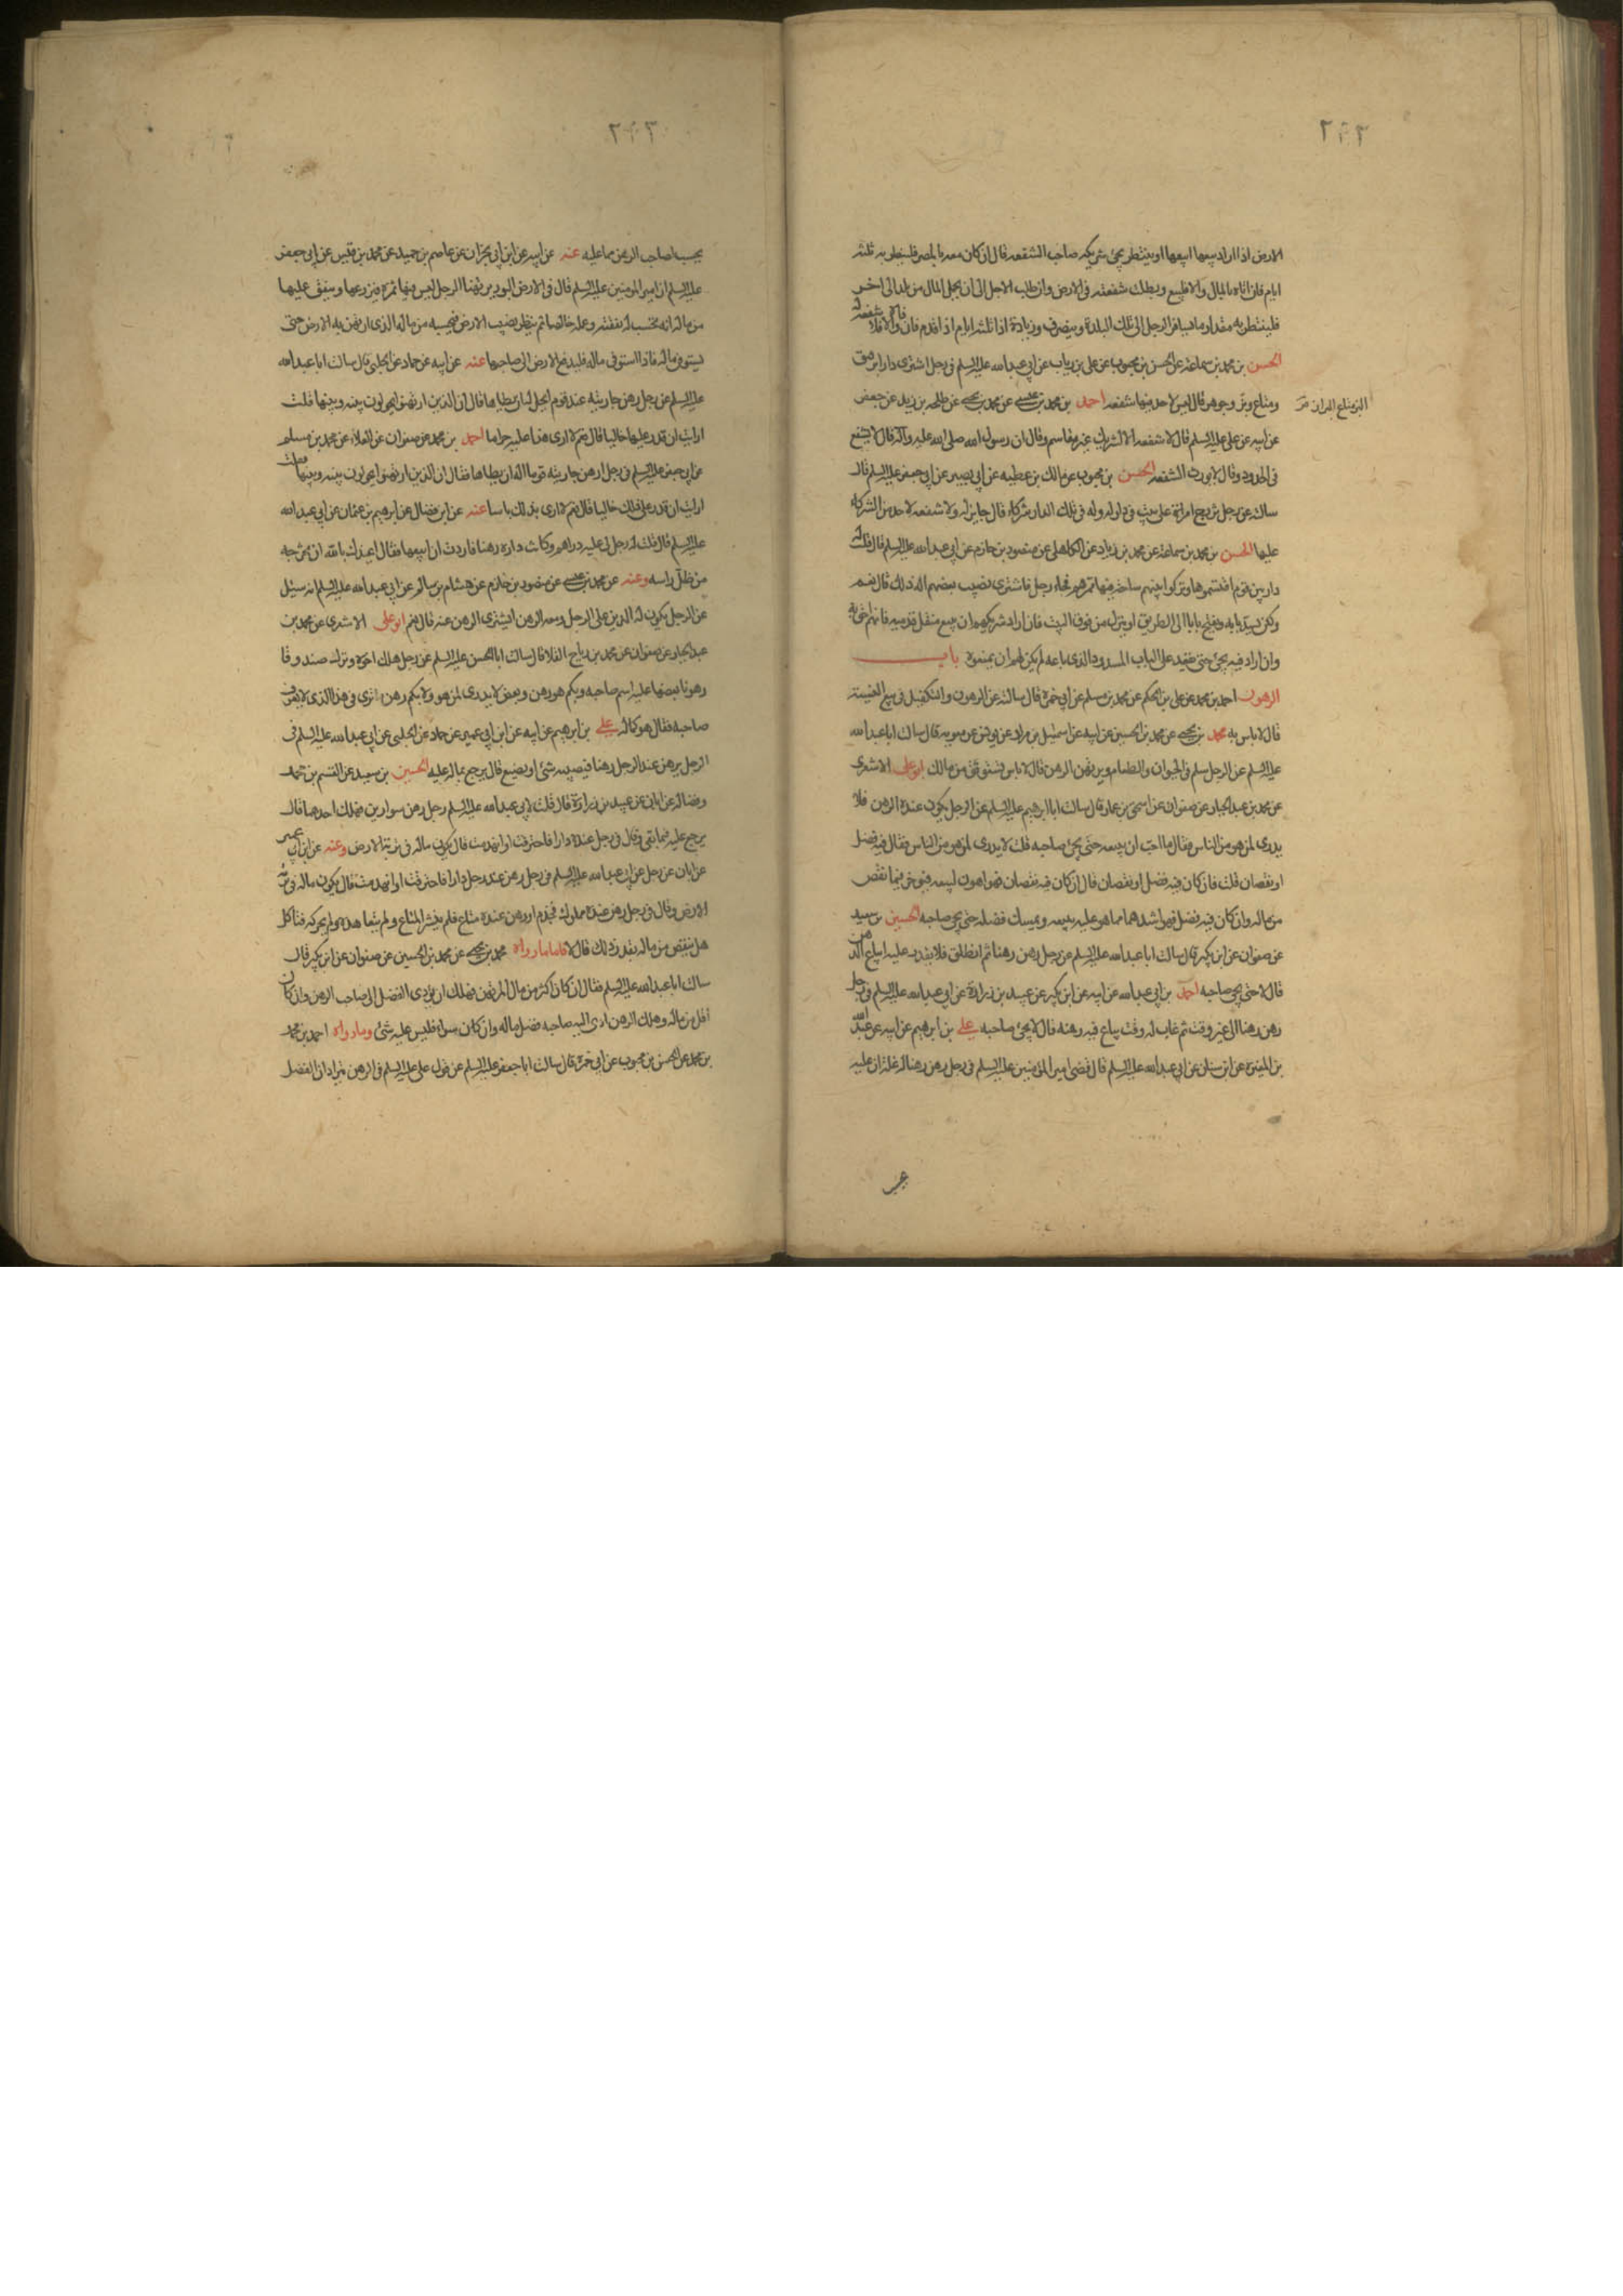 ٢٩٢
الارض اذا اراد بيعها ايبيعها او ينتظر مجئ شريكه صاحب الشفعه قال ان كان معه بالمصر فلينتظر به ثلثه
ايام فان اتاه بالمال والا فليبع وبطلت شفعته فى الارض وان طلب الاجل الى ان يحمل المال من بلد الى اخر
فلينتظر به مقدار ما يسافر الرجل الى تلك البلدة وينصرف وزيادة اذا ثلثه ايام اذا قدم فان وافاه والا فلا شفعة له
الحسن بن محمد بن سماعة عن الحسن بن محبوب عن على بن رياب عن ابى عبدالله عليه السلم فى رجل اشترى دارا برقيق
ومتاع وبز وجوهر قال ليس لاحد فيها شفعه احمد بن محمد بن عيسى عن محمد بن يحيى عن طلحه بن زيد عن جعفر
البز متاع البزاز
عن ابيه عن على عليه السلم قال لا شفعه الا لشريك غير مقاسم وقال ان رسول الله صلى الله عليه وآله قال لا يشفع
فى الحدود وقال لا يورث الشفعه الحسن بن محبوب عن مالك بن عطيه عن ابى بصير عن ابى جعفر عليه السلم قال
سالته عن رجل تزوج امراة على بيت فى دار له وله فى تلك الدار شركاء قال جايز له ولا شفعه لاحد من الشركاء
عليها الحسن بن محمد بن سماعة عن محمد بن زياد عن الكاهلى عن منصور بن حازم عن ابى عبدالله عليه السلم قال قلت
دار بين قوم اقتسموها وتركوا بينهم ساحة فيها ممرهم فجاء رجل فاشترى نصيب بعضهم اله ذلك قال نعم
ولكن يسد بابه ويفتح بابا الى الطريق او ينزل من فوق البيت فان اراد شريكهم ان يبيع منقل قدميه فانهم احق به
وان اراد فيه يجئ حتى يقعد على الباب المسدود الذى باعه لم يكن لهم ان يمنعوه باب
الرهون احمد بن محمد عن على بن الحكم عن محمد بن مسلم عن ابى حمزة قال سالته عن الرهون والكفيل فى بيع النسيئة
قال لا باس به محمد بن يحيى عن محمد بن الحسين عن ابيه عن اسمعيل بن مراد عن يونس عن معويه قال سالت ابا عبدالله
عليه السلم عن الرجل يسلم فى الحيوان والطعام ويرتهن الرهن قال لا باس تستوثق من مالك ابو على الاشعرى
عن محمد بن عبد الجبار عن صفوان عن اسحق بن عمار قال سالت ابا ابرهيم عليه السلم عن الرجل يكون عنده الرهن فلا
يدرى لمن هو من الناس فقال ما احب ان يبيعه حتى يجئ صاحبه قلت لا يدرى لمن هو من الناس فقال فيه فضل
او نقصان قلت فان كان فيه فضل او نقصان قال ان كان فيه نقصان فهو اهون لبيعه فيوجر فيما نقص
من ماله وان كان فيه فضل فهو اشدهما مما هو عليه يبيعه ويمسك فضله حتى يجئ صاحبه الحسين بن سعيد
عن صفوان عن ابن بكير قال سالت ابا عبدالله عليه السلم عن رجل رهن رهنا ثم انطلق فلا يقدر عليه ايباع الرهن
قال لا حتى يجئ صاحبه احمد بن ابى عبدالله عن ابيه عن ابن بكير عن عبيد بن زراره عن ابى عبدالله عليه السلم فى رجل
رهن رهنا الى غير وقت ثم غاب له وقت يباع فيه رهنه قال لا يجئ صاحبه على بن ابرهيم عن ابيه عن عبد الله
بن المغيرة عن ابن سنان عن ابى عبدالله عليه السلم قال قضى امير المؤمنين عليه السلم فى رجل رهن رهنا له غلة ان غلته
٢٩٣
يحسب لصاحب الرهن مما عليه عنه عن ابيه عن ابن ابى نجران عن عاصم بن حميد عن محمد بن قيس عن ابى جعفر
عليه السلم ان امير المومنين عليه السلم قال فى الارض البور يرتهنها الرجل ليس فيها ثمرة فزرعها وينفق عليها
من ماله انه يحتسب له نفقته وعمله خالصا ثم ينظر نصيب الارض فيحسبه من ماله الذى ارتهن به الارض حتى
يستوفى ماله فاذا استوفى ماله فليدفع الارض الى صاحبها عنه عن ابيه عن حماد عن الحلبى قال سالت ابا عبدالله
عليه السلم عن رجل رهن جاريته عند قوم ايحل له ان يطاها قال ان الذين ارتهنوها يحولون بينه وبينها قلت
ارايت ان قدر عليها خاليا قال نعم لا ارى هذا عليه حراما احمد بن محمد عن صفوان عن العلاء عن محمد بن مسلم
عن ابى جعفر عليه السلم فى رجل ارهن جاريته قوما اله ان يطاها فقال ان الذين ارتهنوها يحولون بينه وبينها قلت
ارايت ان قدر على ذلك خاليا قال نعم لا ارى بذلك باسا عنه عن ابن فضال عن ابرهيم بن عثمان عن ابى عبدالله
عليه السلم قال قلت له رجل لى عليه دراهم وكانت داره رهنا فاردت ان ابيعها فقال اعيذك بالله ان تخرجه
من ظل راسه وعنه عن محمد بن عيسى عن منصور بن حازم عن هشام بن سالم عن ابى عبدالله عليه السلم انه سئل
عن الرجل يكون له الدين على الرجل ومعه الرهن ايشترى الرهن منه قال نعم ابو على الاشعرى عن محمد بن
عبد الجبار عن صفوان عن محمد بن رباح القلا قال سالت ابا الحسن عليه السلم عن رجل هلك اخوه وترك صندوقا
رهونا بعضها عليه اسم صاحبه وبكم هو رهن وبعض لا يدرى لمن هو ولا بكم رهن ما ترى فى هذا الذى لا يعرف
صاحبه فقال هو كماله على بن ابرهيم عن ابيه عن ابن ابى عمير عن حماد عن الحلبى عن ابى عبدالله عليه السلم فى
الرجل يرهن عند الرجل رهنا فيصيبه شئ او يضيع قال يرجع بماله عليه الحسين بن سعيد عن القسم بن محمد
وفضاله عن ابان عن عبيد بن زرارة قال قلت لابى عبدالله عليه السلم رجل رهن سوارين فهلك احدهما قال
يرجع عليه فيما بقى وقال فى رجل عنده دارا فاحترقت او انهدمت قال يكون ماله فى تربة الارض وعنه عن ابن ابى عمير
عن ابان عن رجل عن ابى عبدالله عليه السلم فى رجل رهن عند رجل دارا فاحترقت او انهدمت قال يكون ماله فى تربة
الارض وقال فى رجل رهن عنده مملوك فجذم او رهن عنده متاع فلم ينشر المتاع ولم يتعاهده ولم يحركه فتاكل
هل ينقص من ماله بقدر ذلك قال لا فاما ما رواه محمد بن يحيى عن محمد بن الحسين عن صفوان عن ابن بكير قال
سالت ابا عبدالله عليه السلم فقال ان كان اكثر من مال المرتهن فهلك ان يؤدى الفضل الى صاحب الرهن وان كان
اقل من ماله وهلك الرهن ادى اليه صاحبه فضل ماله وان كان سواء فليس عليه شئ وما رواه احمد بن محمد
بن محمد عن الحسن بن محبوب عن ابى حمزة قال سالت ابا جعفر عليه السلم عن قول على عليه السلم فى الرهن يترادان الفضل